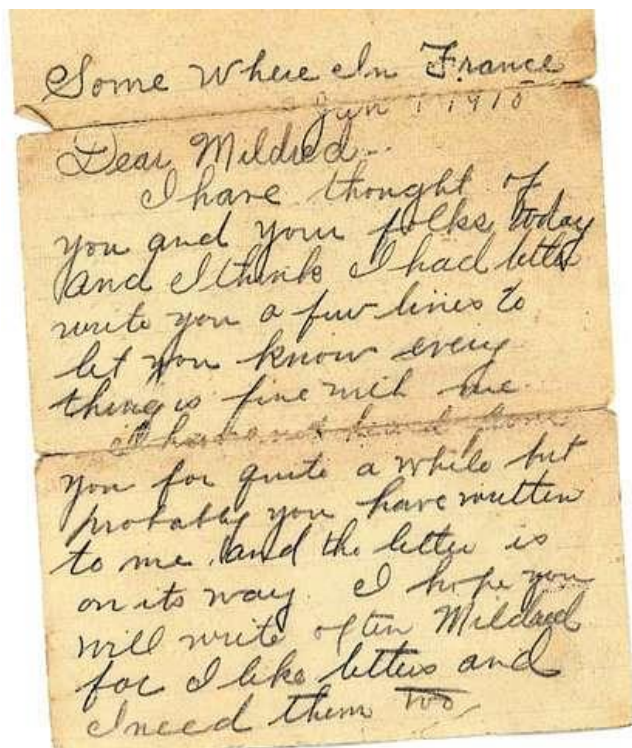 Some Where In France
Jan 1 1918
Dear Mildred..
I have thought of
you and your folks today
and I think I had better
write you a few lines to
let you know every
thing is fine with me.
I havent heard from
you for quite a while but
probably you have written
to me and the letter is
on its way. I hope you
will write often Mildred
for I like letters and
I need them too